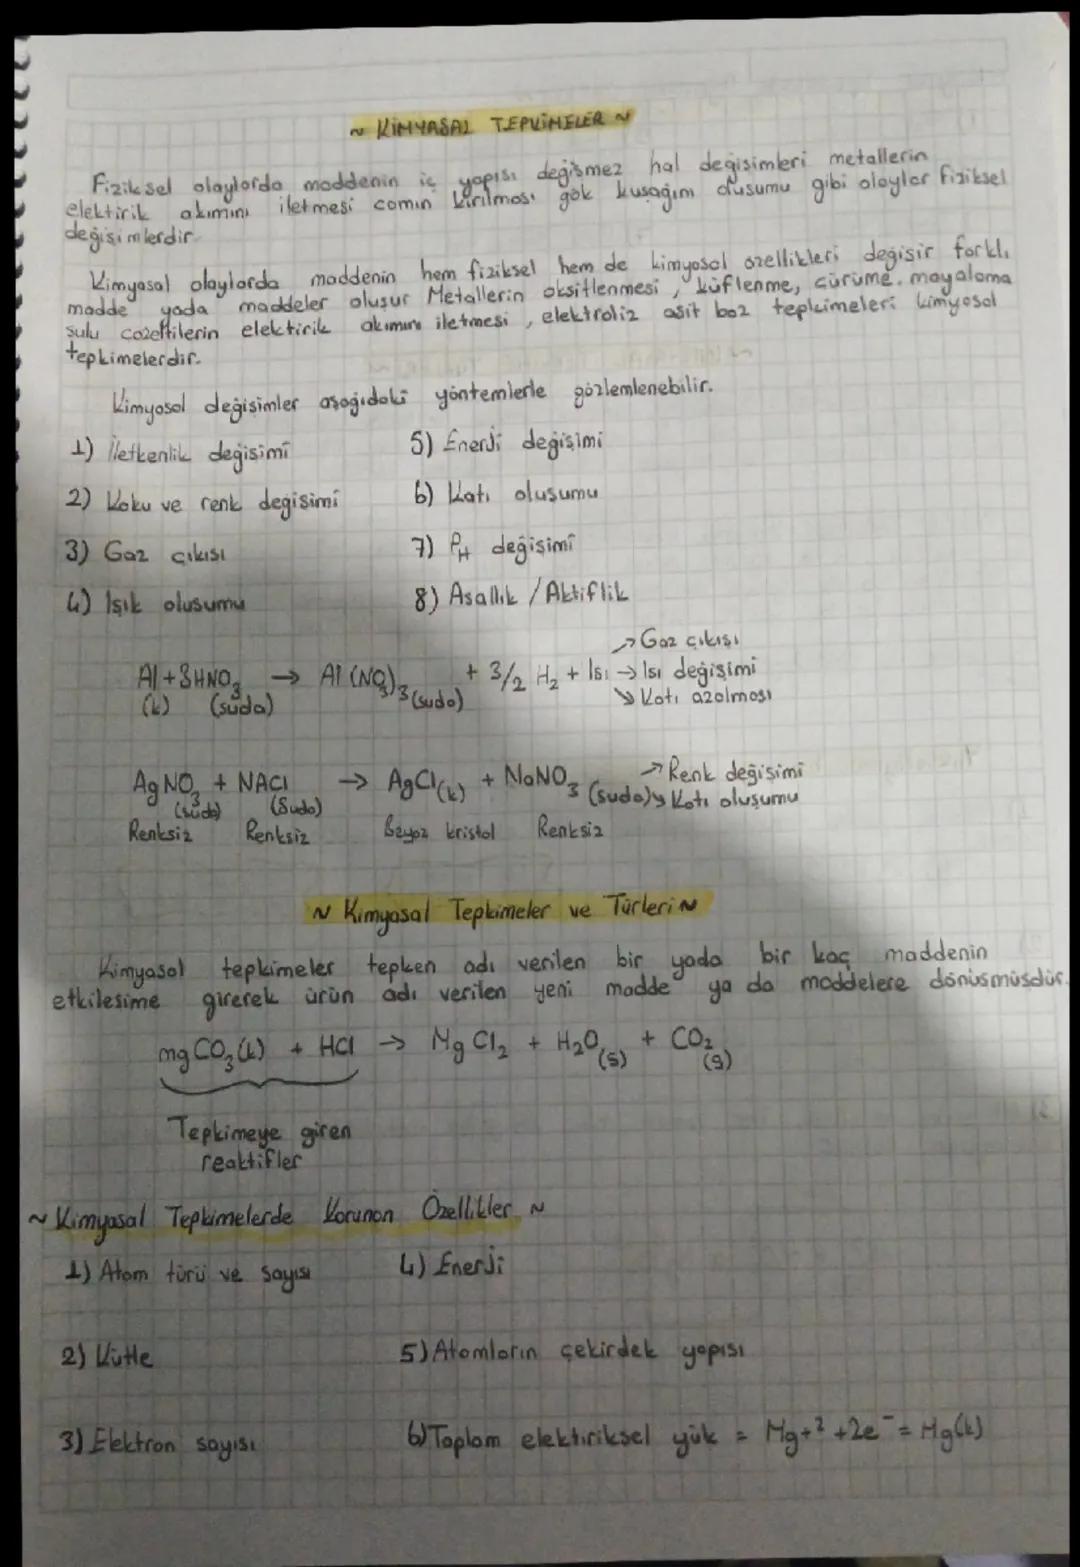 ~ KİMYASAL TEPKİMELER ~
Fiziksel olaylarda maddenin iç yapısı değişmez hal değişimleri metallerin
elektirik akımını iletmesi camın kırılması gök kuşağını oluşumu gibi olaylar fiziksel
değişimlerdir.
Kimyasal olaylarda maddenin hem fiziksel hem de kimyasal özellikleri değişir farklı
madde yada maddeler oluşur Metallerin oksitlenmesi, küflenme, çürüme, mayalama
sulu çözeltilerin elektirik akımını iletmesi, elektroliz asit baz tepkimeleri kimyasal
tepkimelerdir.
Kimyasal değişimler aşağıdaki yöntemlerle gözlemlenebilir.
1) İletkenlik değişimi 5) Enerji değişimi
2) Koku ve renk değişimi 6) Katı oluşumu
3) Gaz çıkışı 7) PH değişimi
4) Işık oluşumu 8) Asallık / Aktiflik
→ Gaz çıkışı
Al + 3HNO3 → Al (NO3)3 (suda) + 3/2 H2 + Isı → Isı değişimi
(k) (suda) ↘ Katı azalması
AgNO3 + NACl → AgCl(k) + NaNO3 (suda) → Renk değişimi
(suda) (Suda) ↘ Katı oluşumu
Renksiz Renksiz Beyaz kristal Renksiz
~ Kimyasal Tepkimeler ve Türleri ~
Kimyasal tepkimeler tepken adı verilen bir yada bir kaç maddenin
etkileşime girerek ürün adı verilen yeni madde ya da maddelere dönüşmüşdür.
mgCO3(k) + HCl → MgCl2 + H2O(s) + CO2(g)
Tepkimeye giren
reaktifler
~ Kimyasal Tepkimelerde Korunan Özellikler ~
1) Atom türü ve sayısı 4) Enerji
2) Kütle 5) Atomların çekirdek yapısı
3) Elektron sayısı 6) Toplam elektiriksel yük = Mg+2 + 2e⁻ = Mg(k)